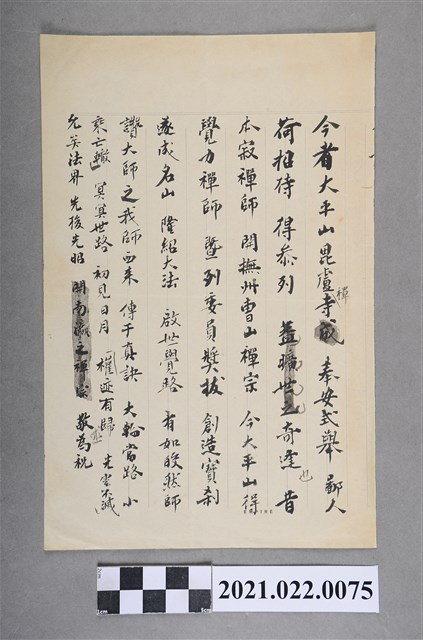 今者大平山毘盧禪寺成 奉安式舉 鄙人
荷招待 得忝列 蓋曠世之奇逢也 昔
本寂禪師 開撫州曹山禪宗 今大平山得
覺力禪師 暨列委員獎拔 創造寶刹
遂成名山 隆紹大法 啟世覺路 有如皎然師
讚大師之我師西來 傳乎真訣 大輪當路 小
乘亡轍 冥冥世路 初見日月 權迹有歸 光空不滅
允矣法界 先後光昭 開南瀛之禪 敬為祝
1cm
5cm
2021.022.0075